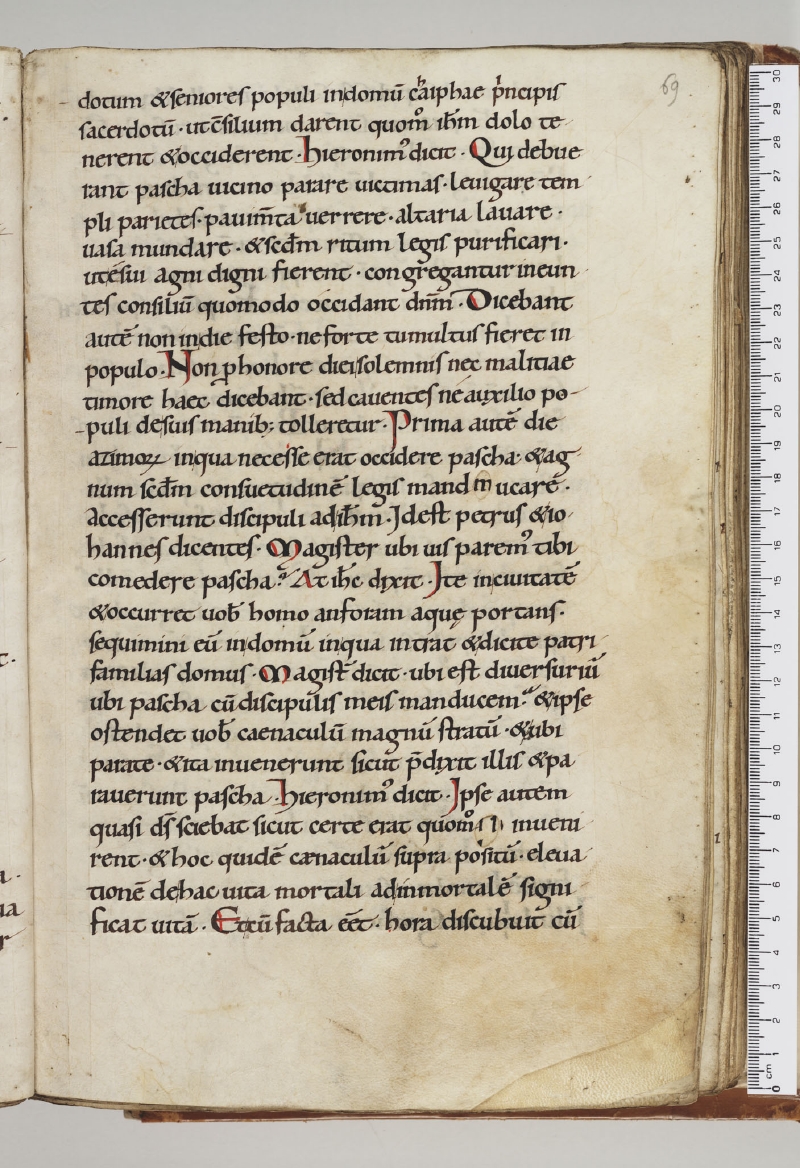 69
dotum &seniores populi indomū cʰaiphae pͥncipis
sacerdotū · utc̄silium darent quom̊ ih̄m dolo te
nerent &occiderent · hieronimꝰ dicit · Qui debue
rant pascha uicino parare uictimas · leuigare tem
pli parietes · pauim̄ta uerrere · altaria lauare ·
uasa mundare · &scd̄m ritum legis purificari ·
utesui agni digni fierent · congregantur ineun
tes consiliū quomodo occidant dn̄m · Dicebant
autē non indie festo · neforte tumultus fieret in
populo · Non ꝑhonore diei solemnis nec malitiae
timore haec dicebant · sed cauentes ne auxilio po-
puli desuis manib; tolleretur · Prima autē die
azimoꝝ inqua necesse erat occidere pascha · &ag
num scd̄m consuetudinē legis mand m ucare ·
Accesserunt discipuli adih̄m · Idest petrus &io
hannes dicentes · Magister ubi uis paremꝰ tibi
comedere pascha? At ih̄c dixit · Ite inciuitatē
&occurret uob̄ homo anforam aquę portans ·
sequimini eū indomū inqua intrat &dicite patri
familias domus · Magist̄ dicit · ubi est diuersuriū
ubi pascha cū discipulis meis manducem? &ipse
ostendet uob̄ caenaculū magnū stratū · &ubi
parate · &ita inuenerunt sicut p̄dixit illis &pa
rauerunt pascha · hieronimꝰ dicit · Ipse autem
quasi ds̄ sciebat sicut certe erat quom̊ inueni
rent · &hoc quidē cænaculū supra positū · eleua
tionē dehac uita mortali adinmortalē signi
ficat uitā · Etcū facta eēt · hora discubuit cū